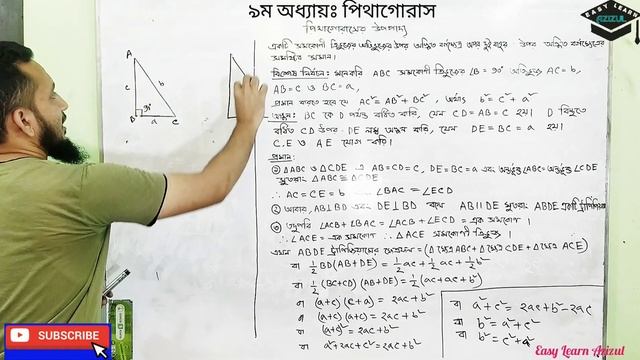 ৯ম অধ্যায়ঃ পিথাগোরাস
EASY LEARN
AZIZUL
পিথাগোরাসের উপপাদ্য
একটি সমকোণী ত্রিভুজের অতিভুজের উপর অঙ্কিত বর্গক্ষেত্র অপর দুই বাহুর উপর অঙ্কিত বর্গক্ষেত্রের
সমষ্টির সমান।
বিশেষ নির্বচন: মনেকরি ABC সমকোণী ত্রিভুজের ∠B = 90° অতিভুজ AC = b,
AB = C ও BC = a,
প্রমাণ করতে হবে যে AC² = AB² + BC², অর্থাৎ b² = c² + a²
অঙ্কন: BC কে D পর্যন্ত বর্ধিত করি, যেন CD = AB = C হয়। D বিন্দুতে
বর্ধিত CD উপর DE লম্ব অঙ্কন করি, যেন DE = BC = a হয়।
C,E ও A,E যোগ করি।
প্রমাণ:
① ΔABC ও ΔCDE এ AB = CD = C, DE = BC = a এবং অন্তর্ভুক্ত ∠ABC = অন্তর্ভুক্ত ∠CDE
সুতরাং ΔABC ≅ ΔCDE
∴ AC = CE = b ∠BAC = ∠ECD
② আবার, AB⊥BD এবং DE⊥BD বলে AB || DE সুতরাং ABDE একটি ট্রাপিজিয়াম
③ তদুপরি ∠ACB + ∠BAC = ∠ACB + ∠ECD = এক সমকোণ।
∴ ∠ACE = এক সমকোণ ∴ ΔACE সমকোণী ত্রিভুজ।
এখন ABDE ট্রাপিজিয়ামের ক্ষেত্রফল = (Δ ক্ষেত্র ABC + Δ ক্ষেত্র CDE + Δ ক্ষেত্র ACE)
বা ½BD(AB+DE) = ½ac + ½ac + ½b²
বা ½(BC+CD)(AB+DE) = ½(ac+ac+b²)
বা (a+c)(c+a) = 2ac+b²
বা (a+c)(a+c) = 2ac+b²
বা (a+c)² = 2ac+b²
বা a²+2ac+c² = 2ac+b²
বা a²+c² = 2ac+b²-2ac
বা b² = a²+c²
বা b² = c²+a²
A
c
b
90°
B
a
C
SUBSCRIBE
Easy Learn Azizul